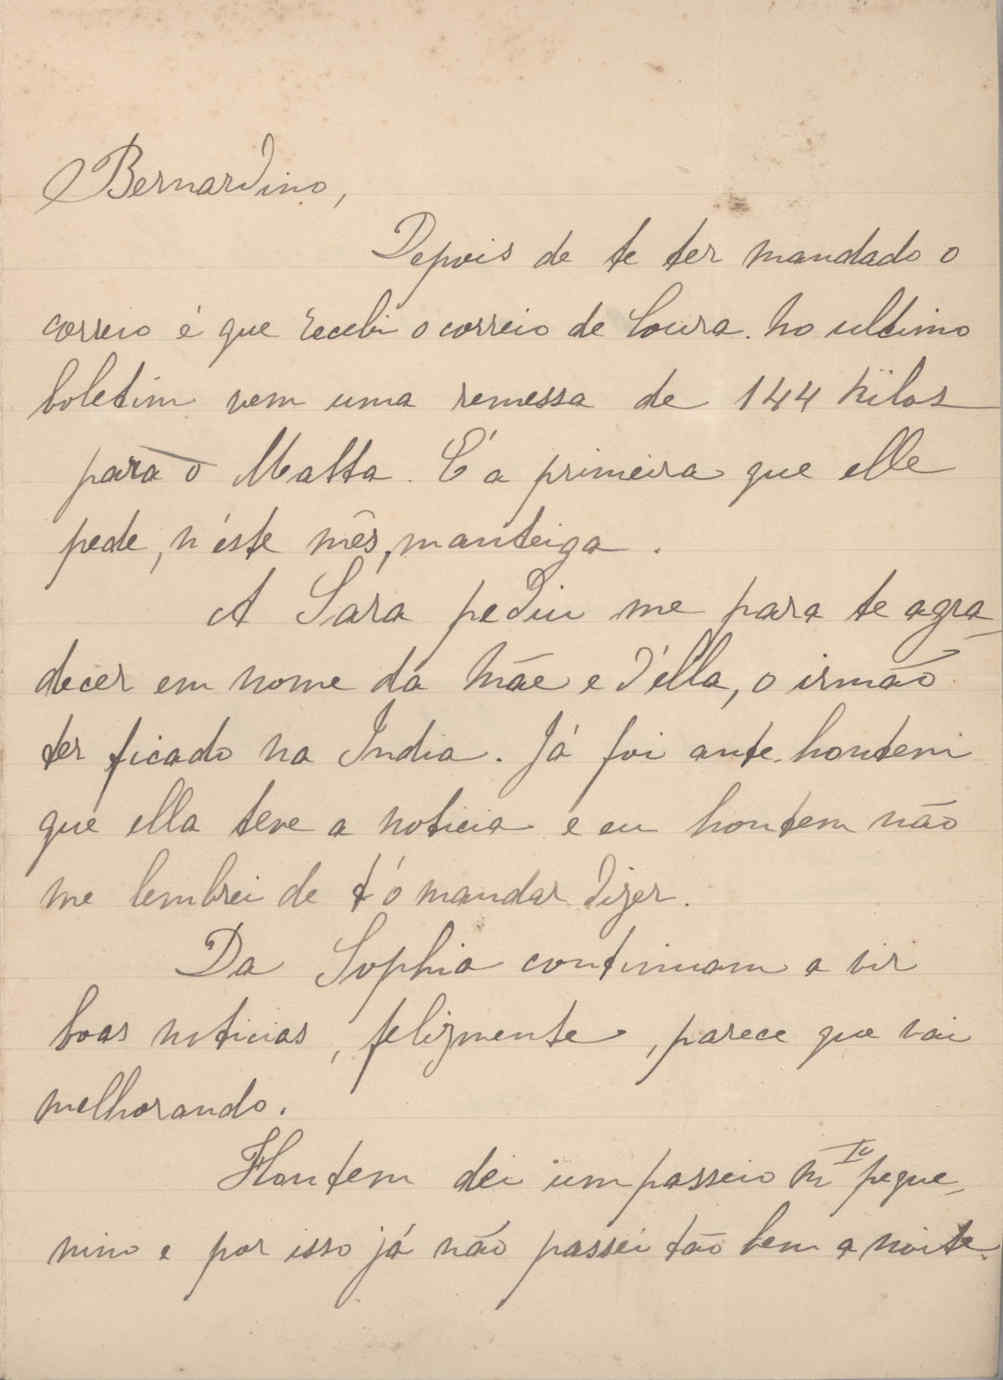 Bernardino,
Depois de te ter mandado o
correio é que recebi o correio de Coura. No ultimo
boletim vem uma remessa de 144 kilos
para o Matta. É a primeira que elle
pede, n'éste mês, manteiga.
A Sára pediu me para te agra_
decer em nome da Mãe e d'élla, o irmão
ter ficado na India. Já foi ante-hontem
que ella teve a noticia e eu hontem não
me lembrei de t'ó mandar dizer.
Da Sophia continuam a vir
boas noticias, felizmente, parece que vai
melhorando.
Hontem dei um passeio mto peque_
nino e por isso já não passei tão bem a noite.